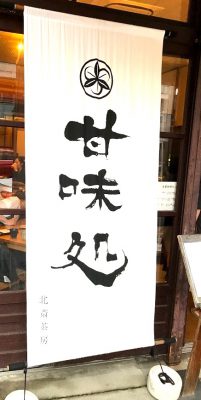 甘味処
北斎茶房